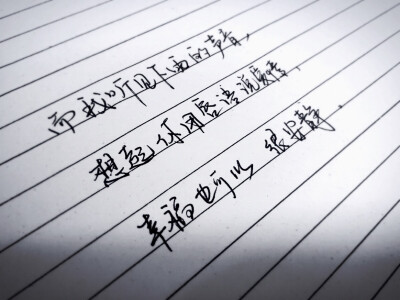 而我听见下雨的声音，
想起你用唇语说爱情，
幸福也可以 很安静，